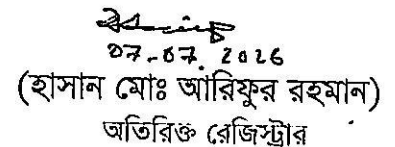 07-07. 2026
(হাসান মোঃ আরিফুর রহমান)
অতিরিক্ত রেজিস্ট্রার